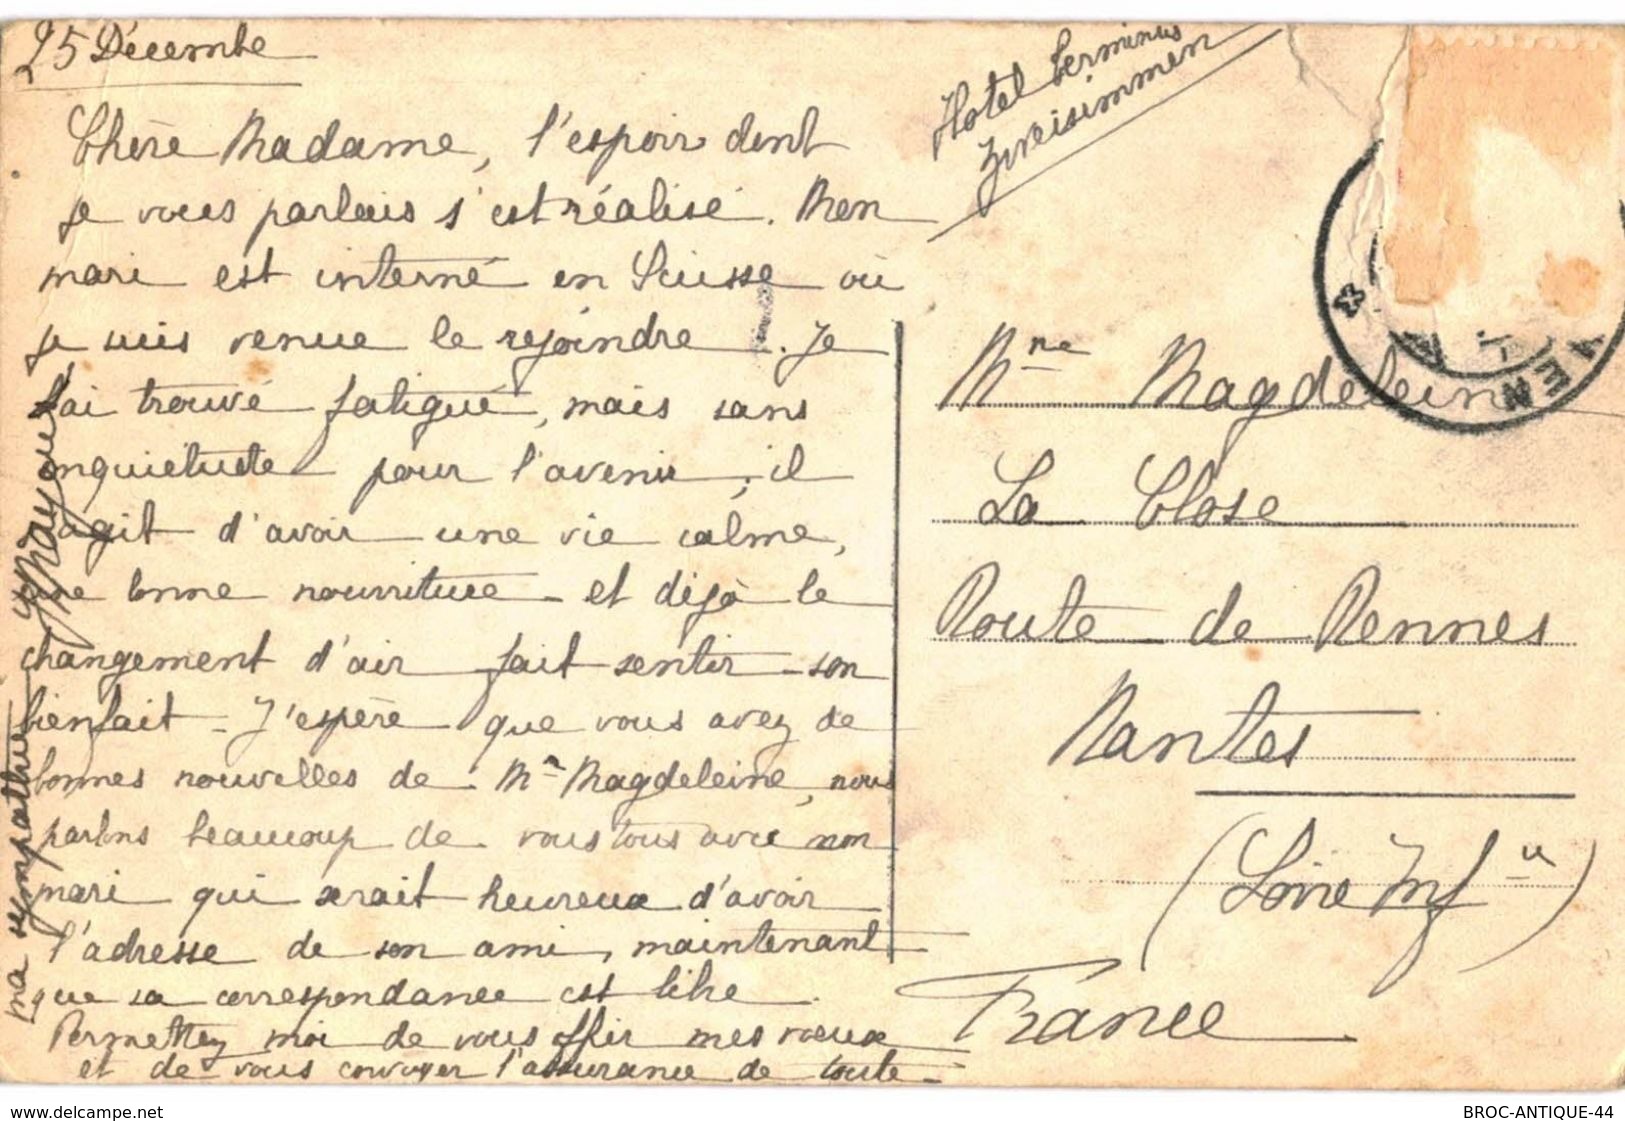 25 Décembre
Hotel Terminus
Zweisimmen
Chère Madame, l'espoir dont
je vous parlais s'est réalisé. Mon
mari est interné en Suisse où
je suis venue le rejoindre. Je
l'ai trouvé fatigué, mais sans
inquietude pour l'avenir, il
s'agit d'avoir une vie calme,
une bonne nourriture et déjà le
changement d'air fait sentir son
bienfait - J'espère que vous avez de
bonnes nouvelles de Mr Magdeleine, nous
parlons beaucoup de vous tous avec mon
mari qui serait heureux d'avoir
l'adresse de son ami, maintenant
que sa correspondance est libre.
Permettez moi de vous offrir mes vœux
et de vous envoyer l'assurance de toute
ma sympathie
Mme Magdeleine
La Close
Route de Rennes
Nantes
(Loire Infre)
France
MEN
BROC-ANTIQUE-44
delcampe.net